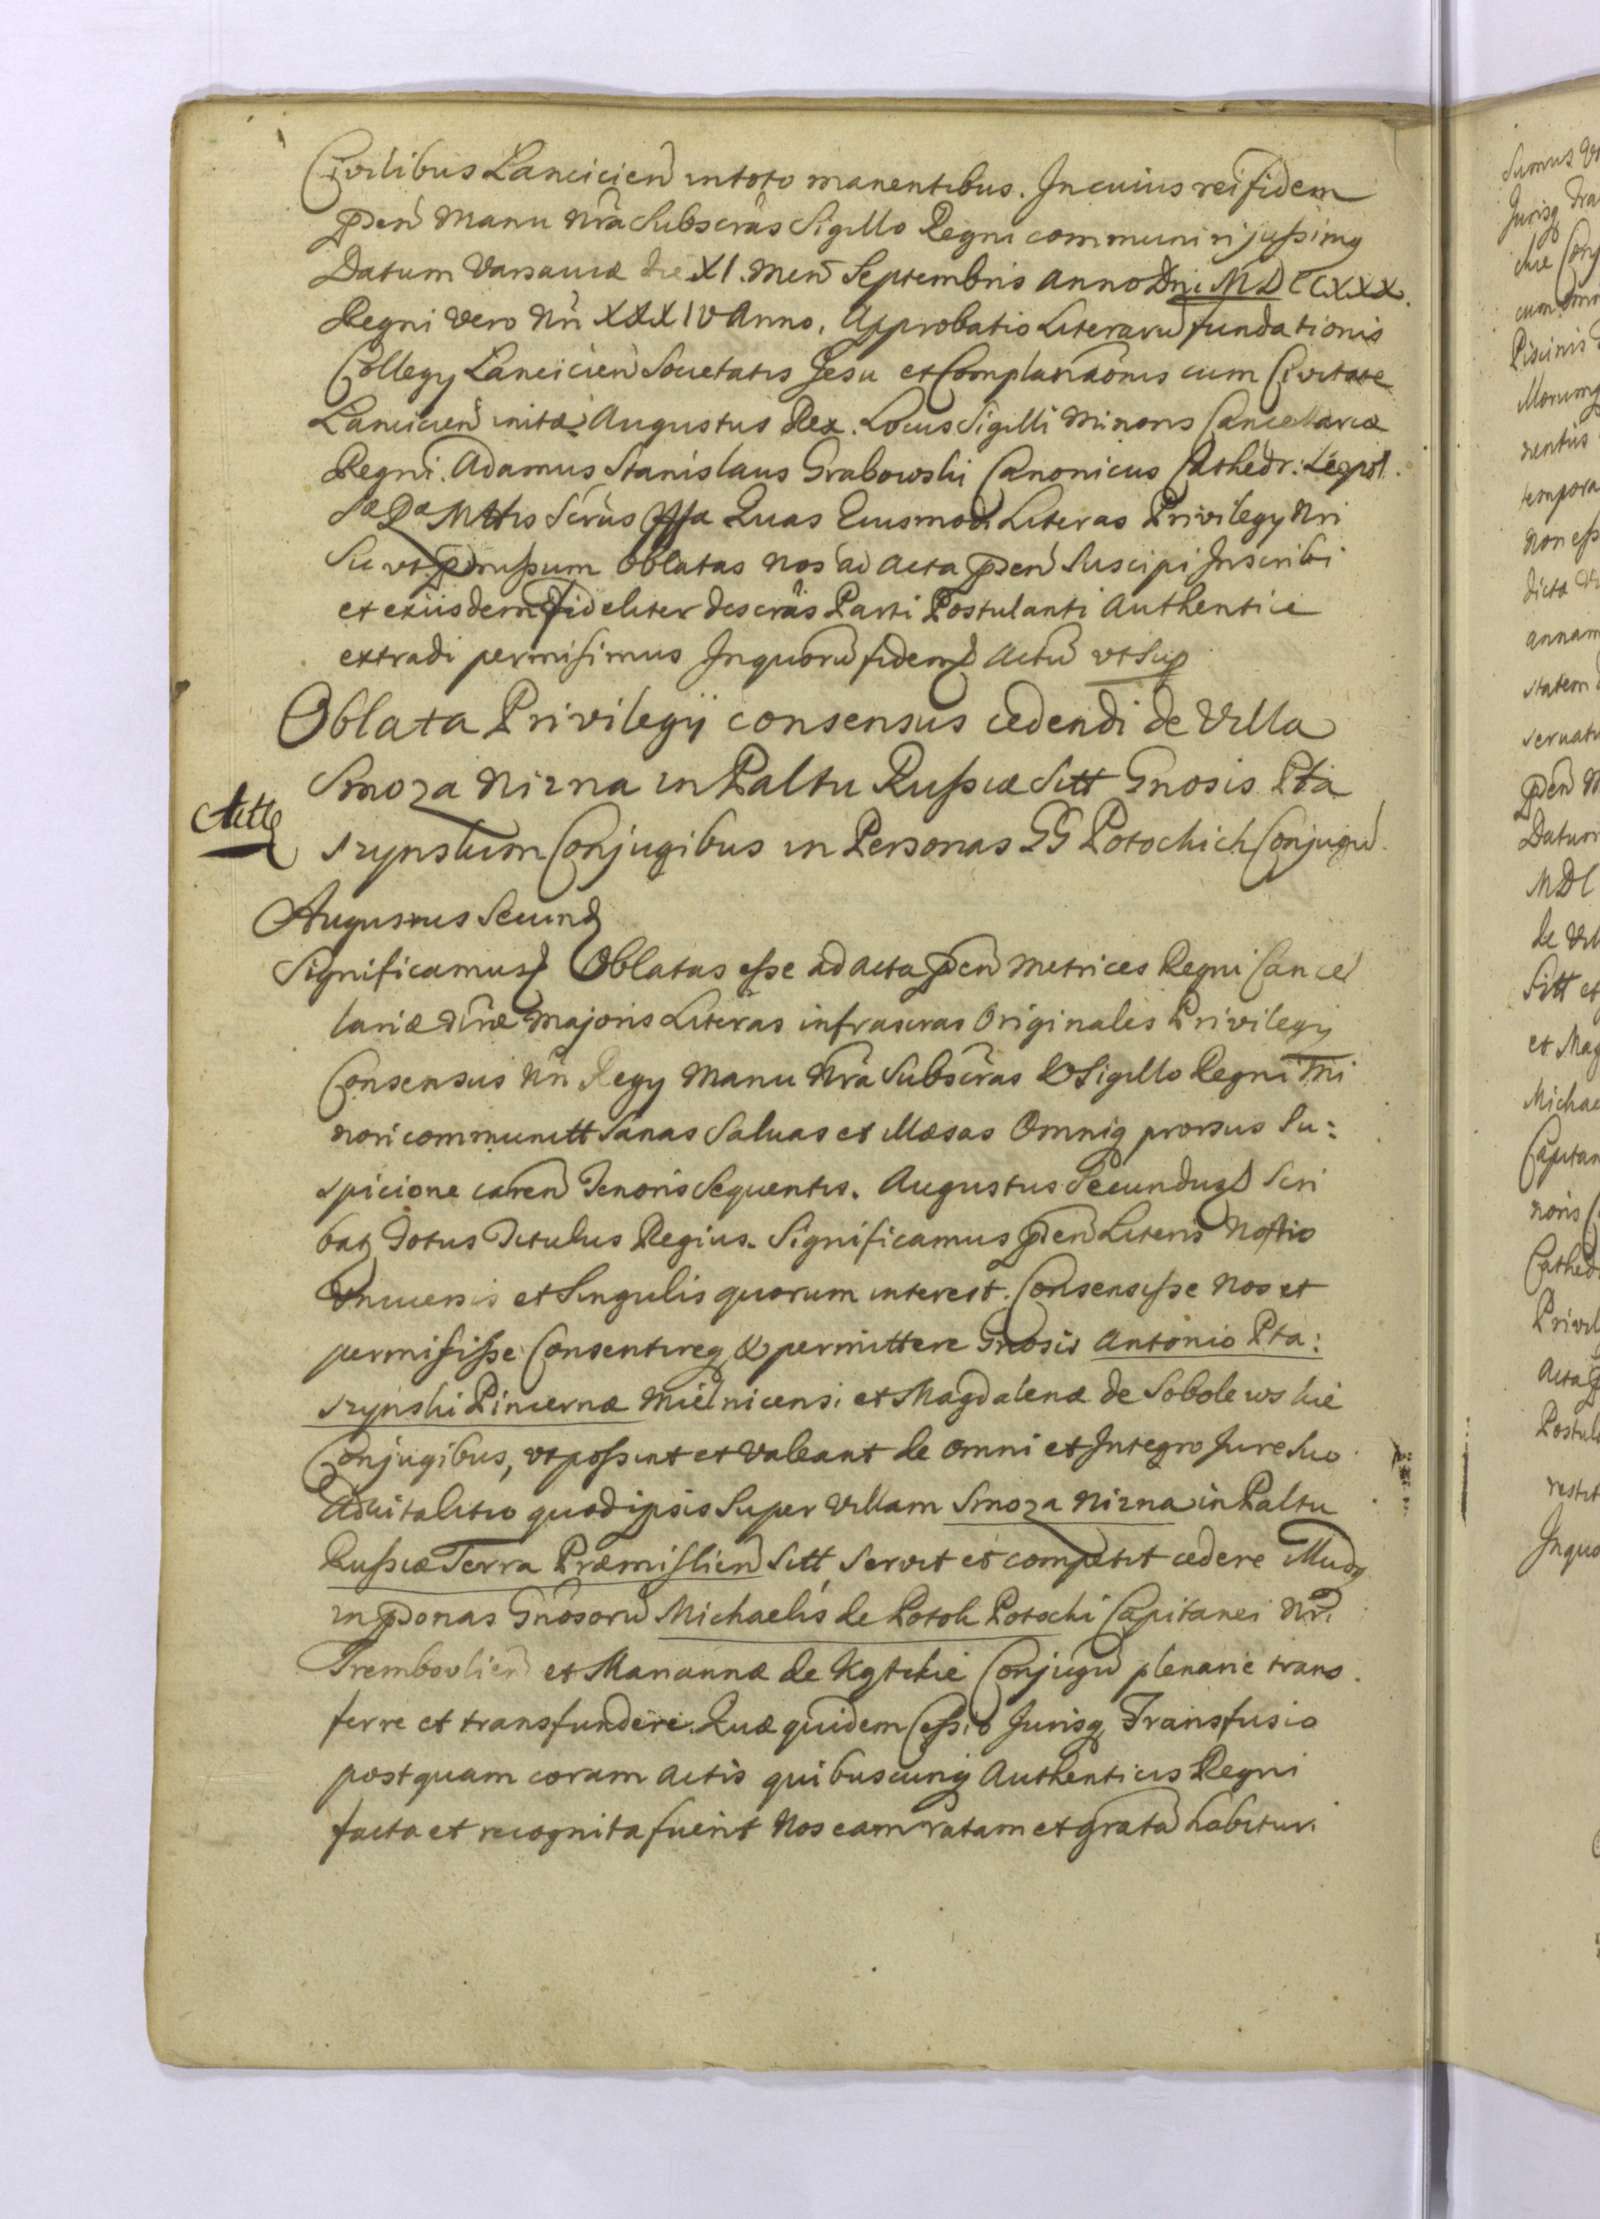 Civilibus Lancicien in toto manentibus. In cuius rei fidem
pñen Manu Nrã Subscrãs Sigillo Regni communiri jussimq
Datum Varsaviæ die XI. Men Septembris Anno Dni MDCCXXX.
Regni Vero Nri XXXIV Anno. Approbatio Literaru fundationis
Collegy Lancicien Societatis Jesu et Complanaõnis cum Civitate
Lancicien initæ. Augustus Rex. Locus Sigilli Minoris Cancellariæ
Regni. Adamus Stanislaus Grabowski Canonicus Cathedr: Leopol.
Quas Eiusmodi Literas Privilegy Nri
Sic ut pmissum Oblatas nos ad Acta pñen Suscipi Inscribi
et ex iisdem fideliter descrãs Parti Postulanti Authentice
extradi permisimus In quoru fidem Actu ut Sup
Oblata Privilegij consensus cedendi de Villa
Smoza Nizna in Paltu Russiæ Sitt Gnosis Pta
szynskim Conjugibus in Personas GG Potockich Conjugu
Augustus Secund
Significamus Oblatas esse ad Acta pñen Metrices Regni Cancel
lariæ Majoris Literas infrascras Originales Privilegy
Consensus Nri Regy Manu Nrã Subscrãs & Sigillo Regni Mi
nori communitt Sanas Saluas et Illæsas Omniq prorsus Su:
spicione caren Tenoris Sequentis. Augustus Secundus Scri
bat Totus Titulus Regius. Significamus pñen Literis Nostris
Vniuersis et Singulis quorum interest. Consensisse Nos et
permisisse Consentireq & permittere Gnosis Antonio Pta:
szynski Pincernæ Mielnicensi et Magdalenæ de Sobolewskie
Conjugibus, vt possint et Valeant de omni et Integro Jure Suo
Aduitalitio quod ipsis Super Villam Smoza Nizna in Paltu
Russiæ Terra Præmislien Sitt Servit et competit cedere Illudq
in psonas Gnosoru Michaelis de Potok Potocki Capitanei Nri
Tremboulien et Mariannæ de Conjugu plenarie trans
ferre et transfundere. Quæ quidem Cessio Jurisq Transfusio
postquam coram Actis quibuscunq Authenticis Regni
facta et recognita fuerit Nos eam ratam et grata habituri